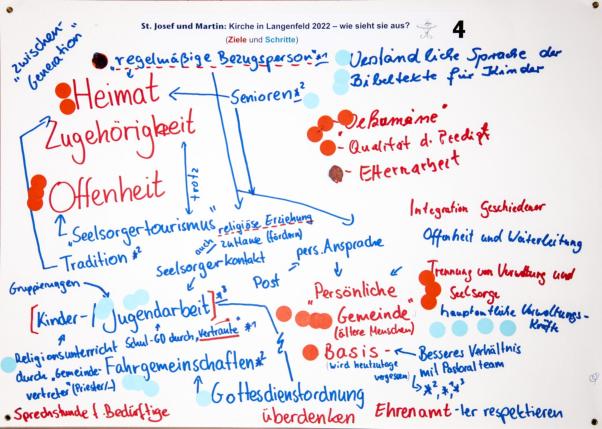 St. Josef und Martin: Kirche in Langenfeld 2022 – wie sieht sie aus?
(Ziele und Schritte)
4
"zwischen-
Generation
"regelmäßige Bezugsperson" *1
Verständliche Sprache der
Bibeltexte für Kinder
Heimat
Senioren *2
Zugehörigkeit
"Ökumene"
- Qualität d. Predigt
- Elternarbeit
trotz
Offenheit
Integration Geschiedener
"Seelsorgertourismus"
religiöse Erziehung
zuhause (fördern)
Offenheit und Weiterleitung
auch
Tradition *2
Seelsorgerkontakt
pers. Ansprache
Gruppierungen
Post
Trennung von Verwaltung und
Seelsorge
[Kinder-/Jugendarbeit] *3
"Persönliche
Gemeinde"
(ältere Menschen)
hauptamtliche Verwaltungs-
kräfte
Schul-GD durch "Vertraute" *1
Religionsunterricht
durch "Gemeinde-
vertreter" (Priester/..)
Fahrgemeinschaften *2
Basis -
(wird heutzutage
vergessen)
Besseres Verhältnis
mit Pastoralteam
*2, *1, *3
Gottesdienstordnung
überdenken
Sprechstunde f. Bedürftige
Ehrenamt-ler respektieren